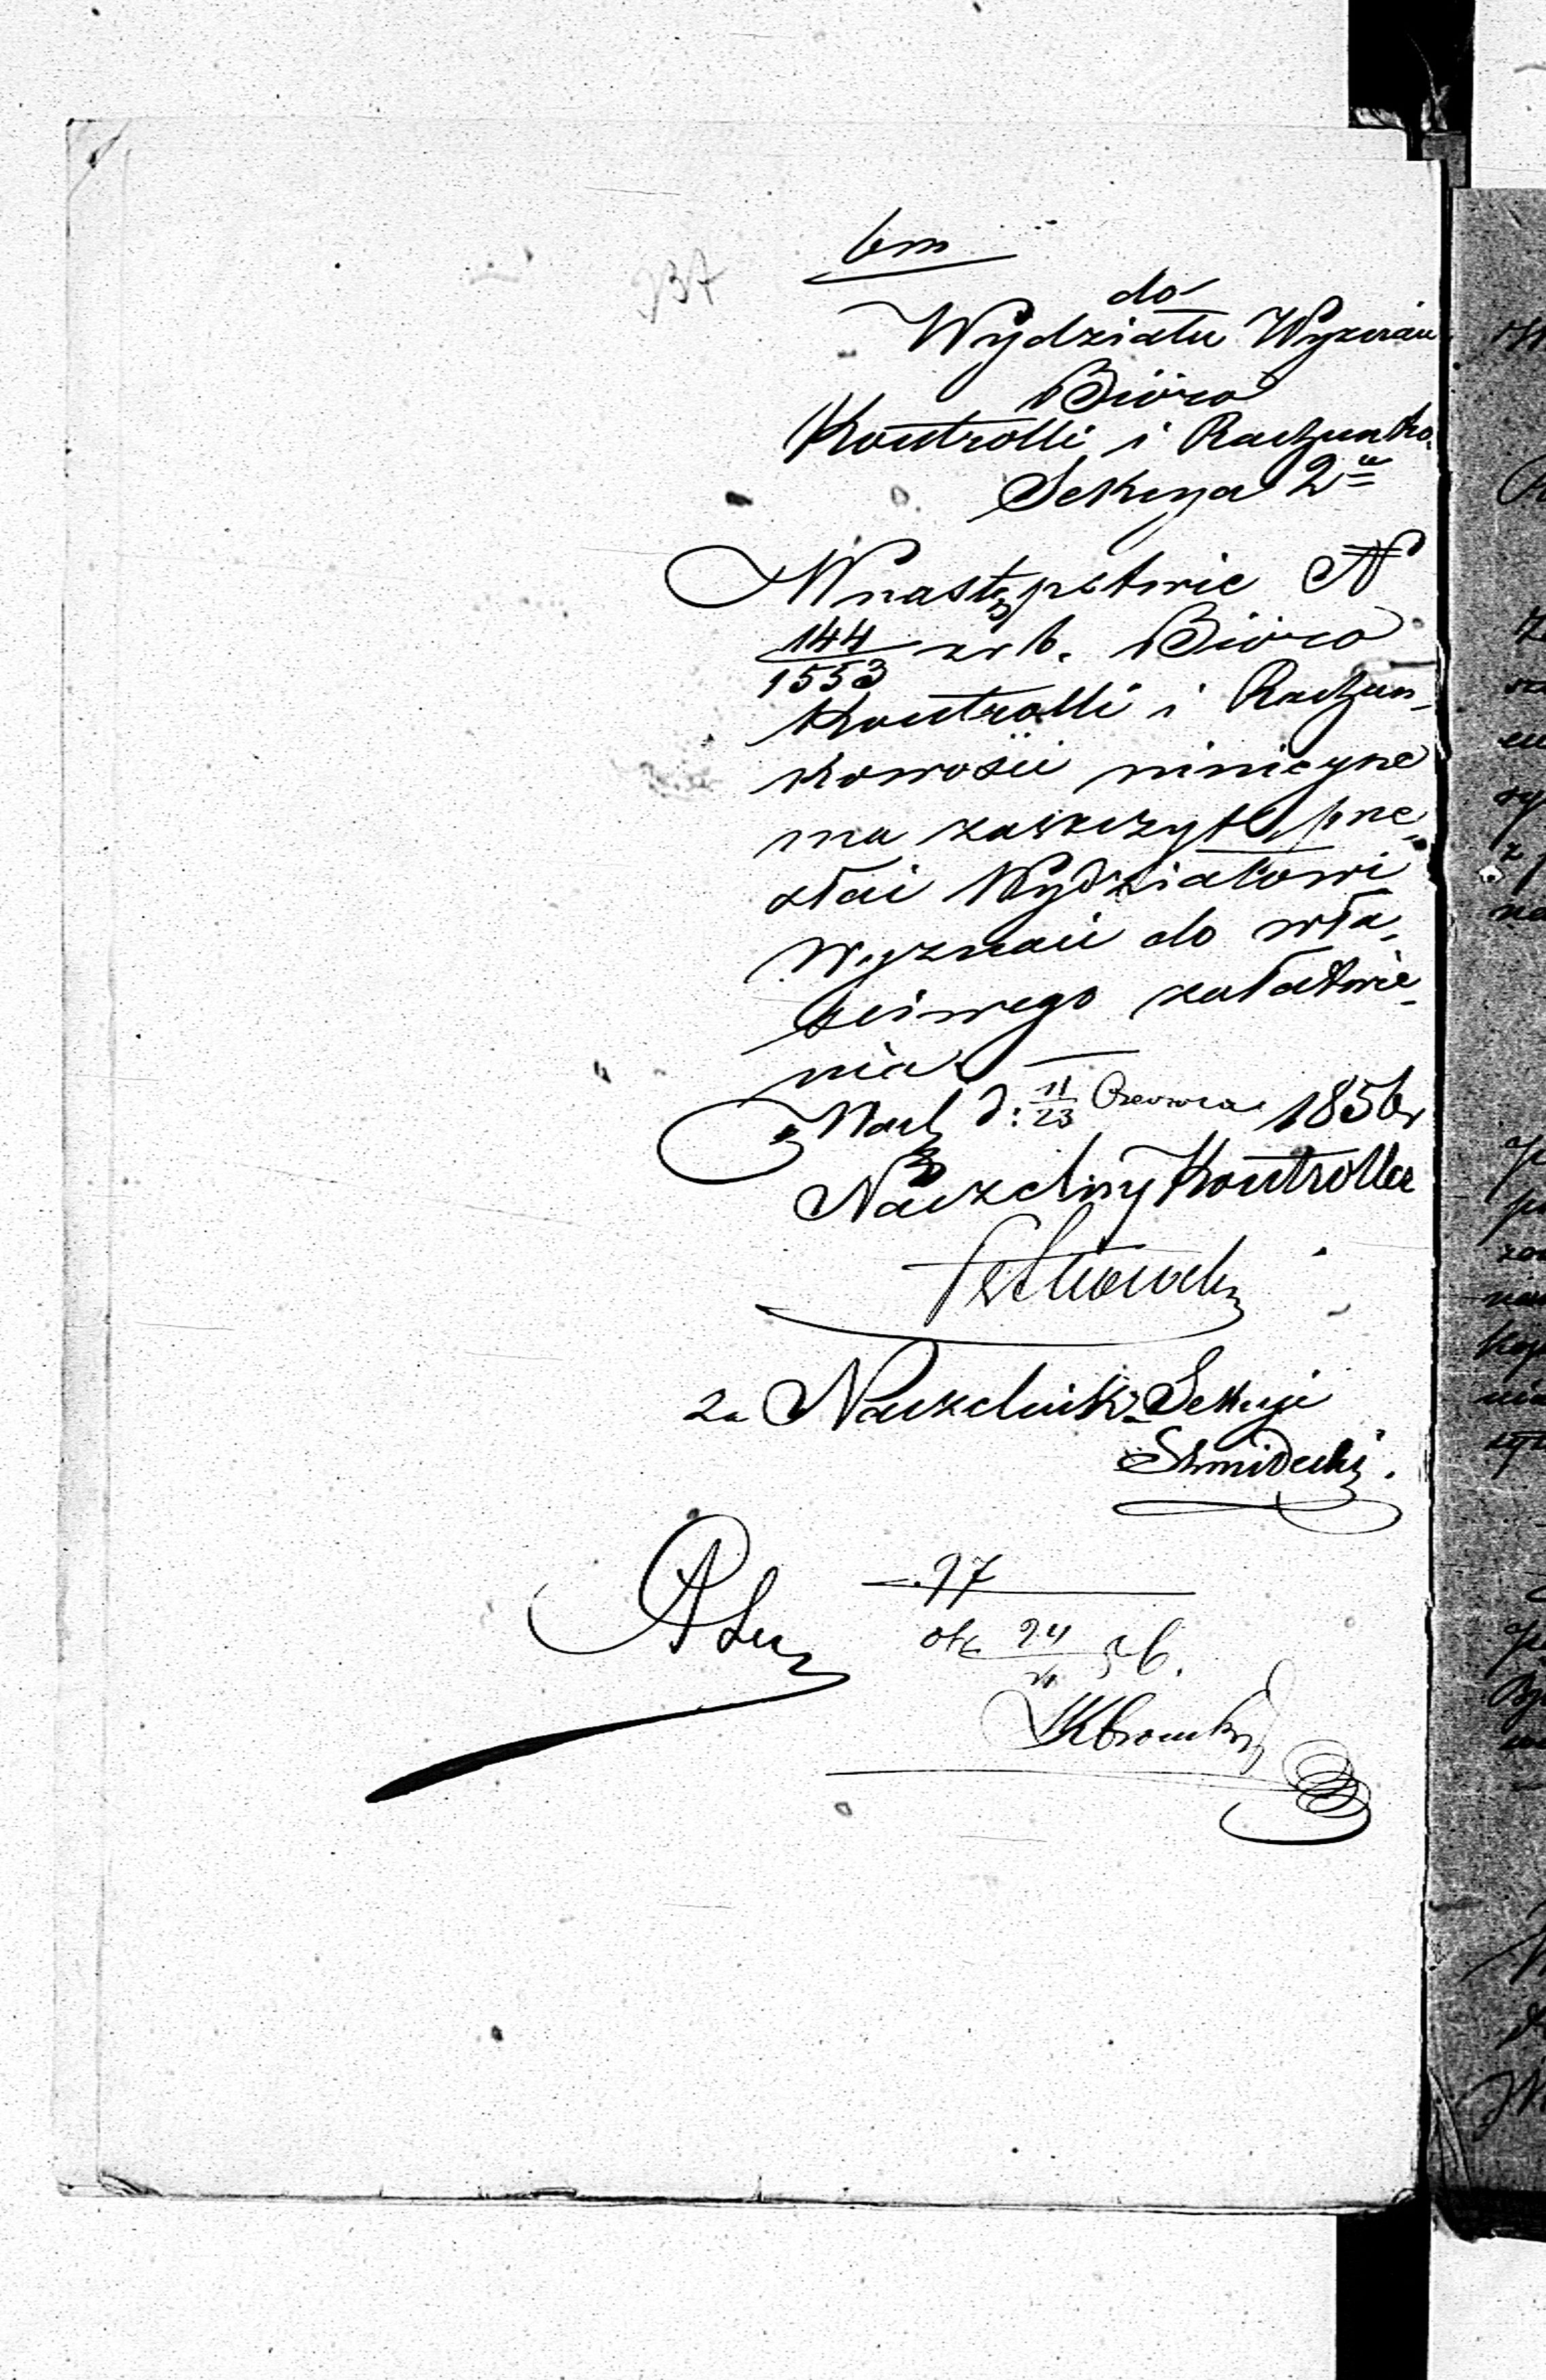 bm
do
Wydziału Wyznań
Bióro
Kontrolli i Rachunko.
Sekcya 2a
W następstwie N
144/1553 z r b. Bióro
Kontrolli i Rachun-
kowości niniejsze
ma zaszczyt prze-
słać Wydziałowi
Wyznań do wła-
ściwego załatwie-
nia. —
Warsz d: 11/23 Czerwca 1856 r
Naczelny Kontroller
za Naczelnik Sekcyi
27
24
56.